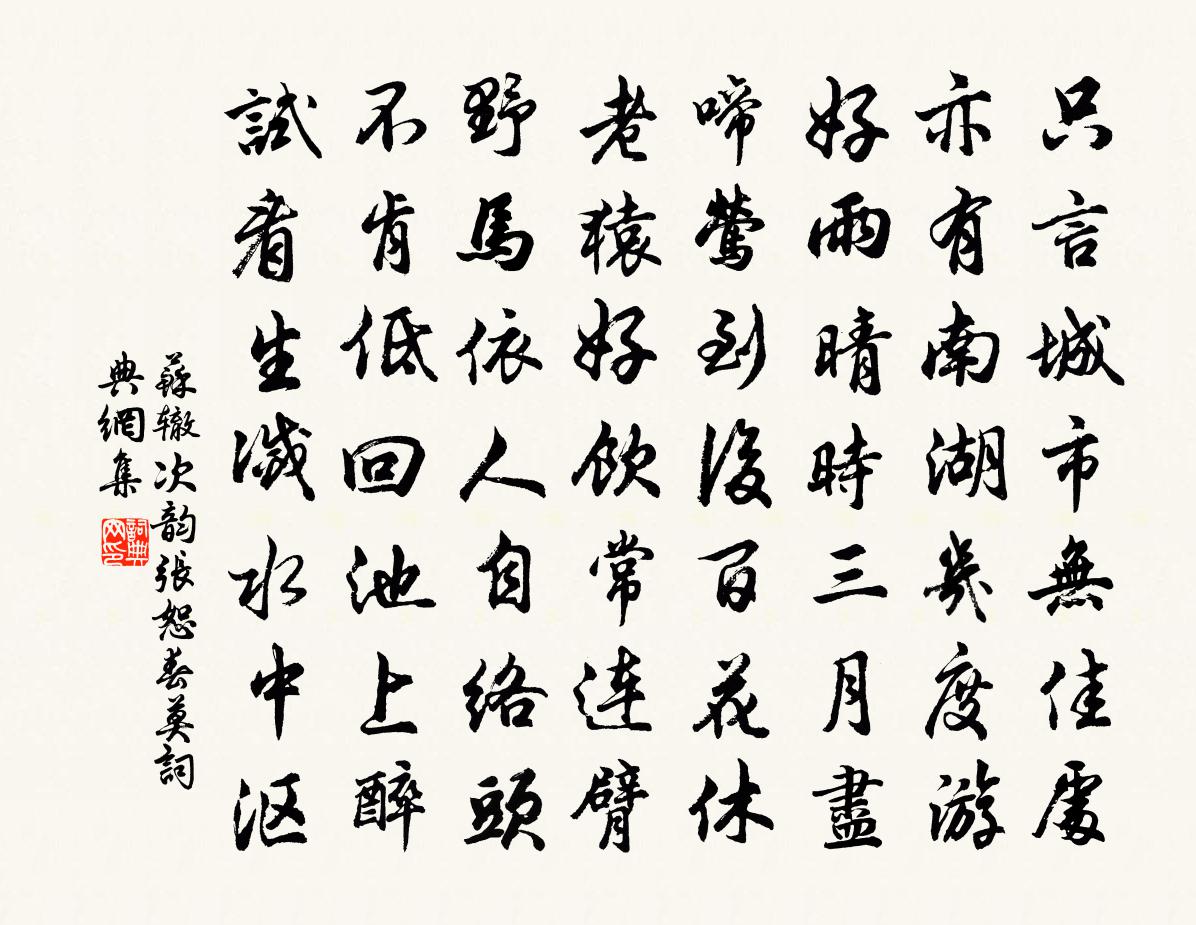 只言城市無佳處
亦有南湖幾度游
好雨晴時三月盡
啼鶯到後百花休
老猿好飲常連臂
野馬依人自絡頭
不肯低回池上醉
試看生滅水中漚
蘇辙次韵張恕春莫詞
典網集
詞典
网印